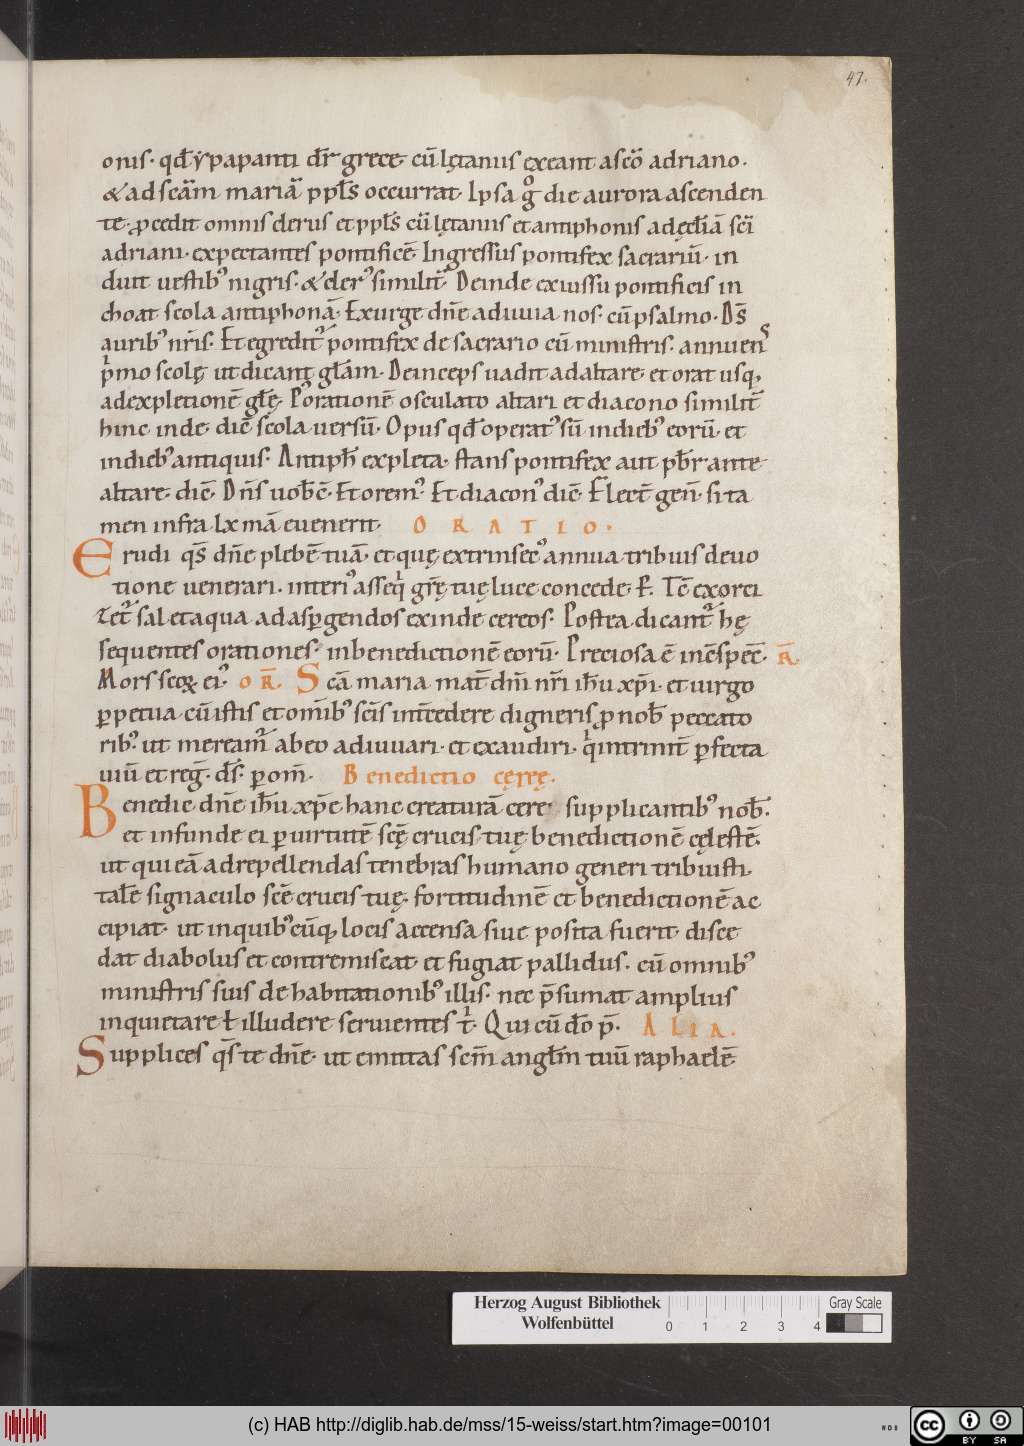 47.
onis· qd̄ ypapanti dr̄ grece· cū lętaniis exeant a sc̄o adriano·
& ad sc̄am mariā ppl̄s occurrat· Ipsa g̊ die aurora ascenden
te· ꝓcedit omnis clerus et ppl̄s cū lętaniis et antiphonis ad ęccl̄iā sc̄i
adriani· expectantes pontificē· Ingressus pontifex sacrariū· in
duit uestibꝰ nigris· & clerꝰ similit̄· Deinde ex iussu pontificis in
choat scola antiphonā· Exurge dn̄e adiuua nos· cū psalmo· Ds̄
auribꝰ nr̄is· Et egredit᷑ pontifex de sacrario cū ministris· annuens
pͥmo scolę ut dicant gl̄am· Deinceps uadit ad altare· et orat usq;
ad expletionē gl̄ę· Pꝰ orationē osculato altari et diacono similit̄
hinc inde· dic̄ scola uersū· Opus qd̄ operatꝰ sū in diebꝰ eorū· et
in diebꝰ antiquis· Antiph̄ expleta· stans pontifex aut pb̄r ante
altare· dic̄· Dn̄s uob̄c̄· Et oremꝰ· Et diaconꝰ dic̄· Flect̄ gen̄· si ta
men infra lxmā euenerit· ORATIO·
Erudi qs̄ dn̄e plebē tuā· et quę extrinsecꝰ annua tribuis deuo
tione uenerari· interiꝰ asseqͥ gr̄ę tuę luce concede· P̄· Tc̄ exorci
zet᷑ sal et aqua ad aspgendos exinde cereos· Postea dicant᷑ hę
sequentes orationes· in benedictionē eorū· Preciosa ē in c̄spec̄· R̄·
Mors scoꝝ eiꝰ· OR̄· Scā maria mat̄ dn̄i nr̄i ih̄u xp̄i· et uirgo
ꝑpetua cū istis et om̄ibꝰ sc̄is int̄cedere digneris ꝓ nob̄ peccato
ribꝰ· ut meream᷑ ab eo adiuuari· et exaudiri· qͥ in trinit̄ ꝑfecta
uiū et reg̅· ds̄· ꝑ om̄· Benedictio cęrę·
Benedic dn̄e ih̄u xp̄e hanc creaturā cere supplicantibꝰ nob̄·
et infunde ei ꝑ uirtutē sc̄ę crucis tuę benedictionē cęlestē·
ut qui eā ad repellendas tenebras humano generi tribuisti·
talē signaculo sc̄ę crucis tuę· fortitudinē et benedictionē ac
cipiat· ut in quibꝰcūq; locis accensa siue posita fuerit· disce
dat diabolus et contremiscat· et fugiat pallidus· cū omnibꝰ
ministris suis de habitationibꝰ illis· nec p̄sumat amplius
inquietare ł illudere seruientes tͥ· Qui cū dō p̄· ALIA·
Supplices qs̄ te dn̄e· ut emittas sc̄m angl̄m tuū raphaelē
Herzog August Bibliothek
Wolfenbüttel
0 1 2 3 4
Gray Scale
(c) HAB http://diglib.hab.de/mss/15-weiss/start.htm?image=00101
WDB
cc BY SA